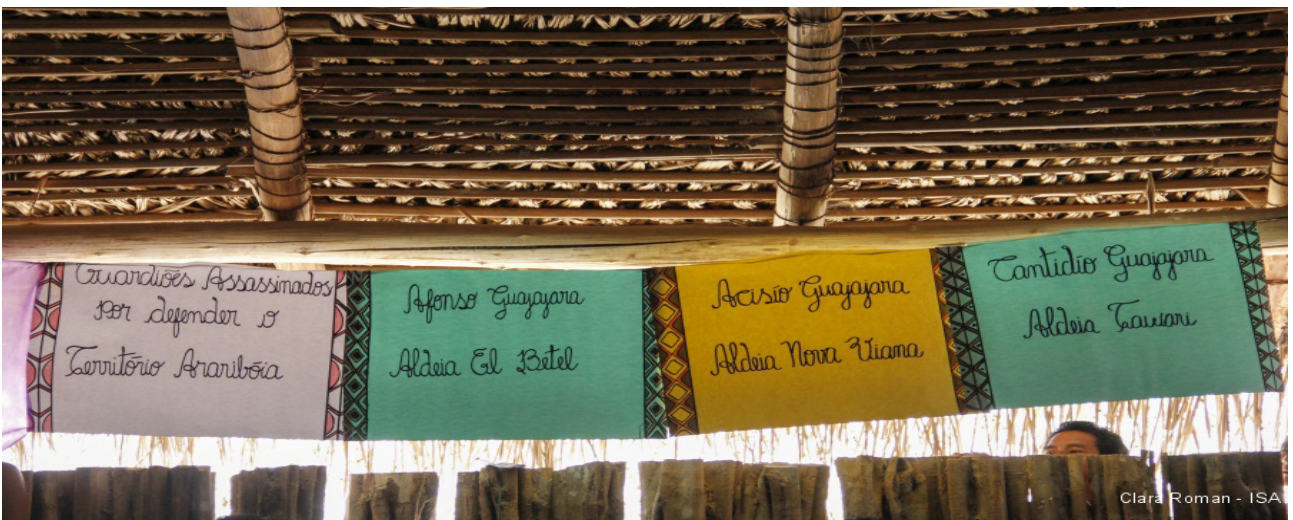 Guardiões Assassinados
por defender o
Território Arariboia
Afonso Guajajara
Aldeia El Betel
Acisio Guajajara
Aldeia Nova Viana
Tantidio Guajajara
Aldeia Tawari
Clara Roman - ISA